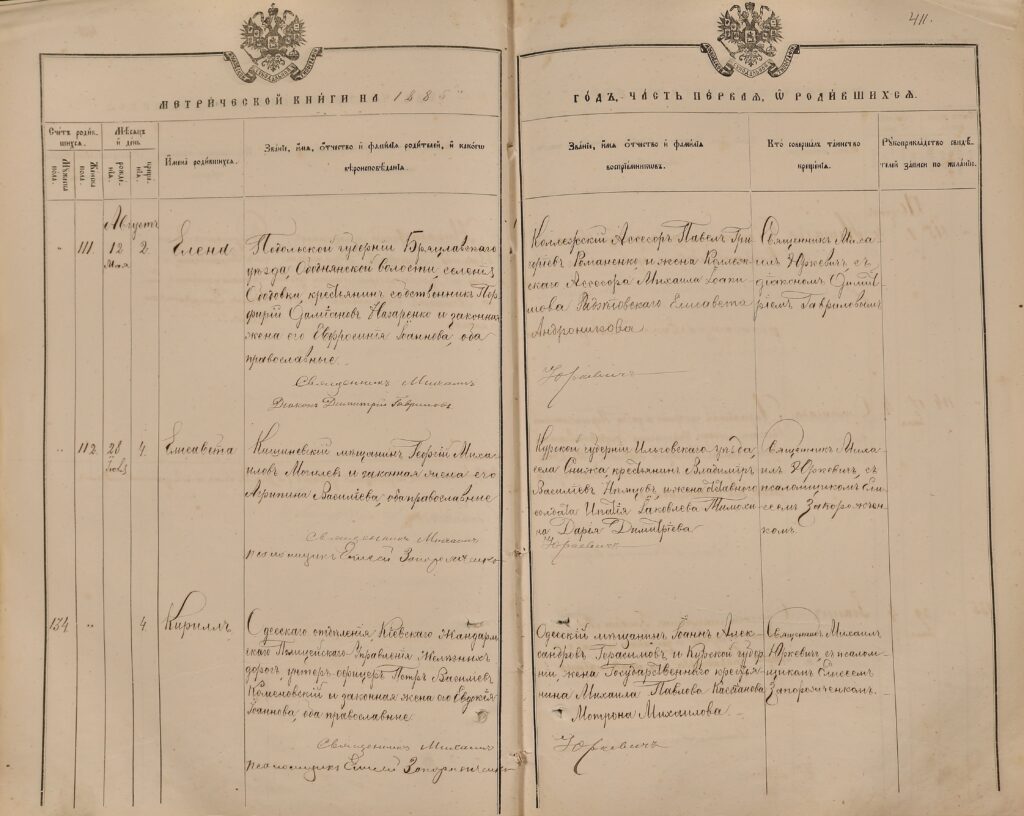 411.
МЕТРИЧЕСКОЙ КНИГИ НА 1885
ГОДЪ, ЧАСТЬ ПЕРВАЯ, Ѡ РОДИВШИХСЯ.
Счетъ родившихся.
Мужеска пола.
Женска пола.
Мѣсяцъ и день
рожденія.
крещенія.
Имена родившихся.
Званіе, имя, отчество и фамилія родителей, и какого
вѣроисповѣданія.
Званіе, имя, отчество и фамилія
воспріемниковъ.
Кто совершалъ таинство
крещенія.
Рукоприкладство свидѣтелей записи по желанію.
Августъ
111 12 Мая 2. Елена
Подольской губерніи Брацлавскаго
уѣзда, Ободнянской волости, селенія
Ободовки, крестьянинъ собственникъ Пор-
фирій Даміановъ Назаренко и законная
жена его Евфросинія Іоаннова, оба
православные.
Священникъ Михаилъ
Діаконъ Димитрій Гавриловъ
Коллежскій Ассесоръ Павелъ Гри-
горіевъ Романенко и жена Коллеж-
скаго Ассесора Михаила Іоаки-
мова Елисавета
Андроникова
Юркевичъ
Священникъ Миха-
илъ Юркевичъ, съ
діакономъ Димит-
ріемъ Гавриловымъ
112 28 4. Елисавета
Кишиневскій мѣщанинъ Георгій Миха-
иловъ Могилев и законная жена его
Агрипина Василіева, оба православные
Священникъ Михаилъ
псаломщикъ Елисей Запорожченко
Курской губерніи Льговскаго уѣзда,
села крестьянинъ Владиміръ
Василіевъ Нѣмцовъ и жена отставнаго
солдата Ипатія Іаковлева Тимоха-
на Дарія Димитріева
Юркевичъ
Священникъ Миха-
илъ Юркевичъ, съ
псаломщикомъ Ели-
сеемъ Запорожчен-
комъ.
134 4. Кириллъ
Одесскаго отдѣленія Кіевскаго Жандарм-
скаго Полицейскаго Управленія Желѣзныхъ
дорогъ, унтеръ-офицеръ Петръ Василіевъ
Коменовскій и законная жена его Евдокія
Іоаннова, оба православные
Священникъ Михаилъ
псаломщикъ Елисей Запорожченко
Одесскій мѣщанинъ Іоаннъ Алек-
сандровъ Герасимовъ и Курской губер-
ніи, жена Государственнаго крестья-
нина Михаила Павлова Кастанова
Мотрона Михаилова.
Юркевичъ
Священникъ Михаилъ
Юркевичъ, съ псалом-
щикомъ Елисеемъ
Запорожченкомъ.